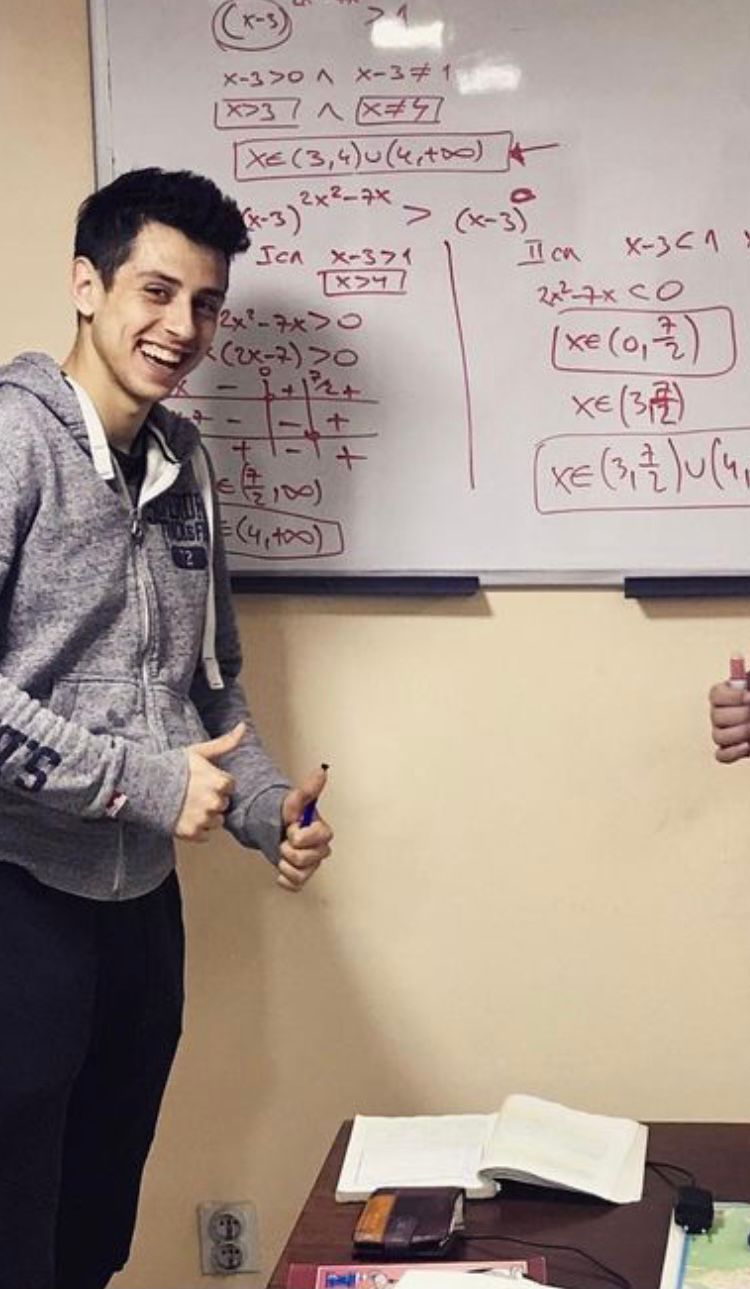 (x-3) > 1
x-3>0 ∧ x-3≠1
x>3 ∧ x≠4
x∈(3,4)∪(4,+∞)
(x-3)^{2x²-7x} > (x-3)^0
I сл x-3>1
x>4
2x²-7x>0
(2x-7)>0
0 7/2
- + +
- - +
+ - +
∈(7/2,∞)
∈(4,+∞)
II сл x-3<1
2x²-7x<0
x∈(0,7/2)
x∈(3,7/2)
x∈(3,7/2)∪(4,